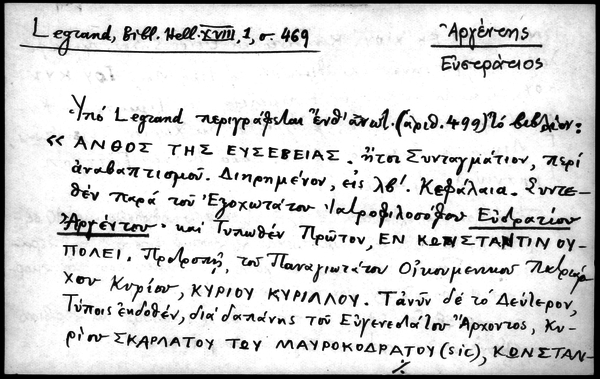 Legrand, Bibl. Hell. XVIII, 1, σ. 469
Ἀργέντης
Εὐστράτιος
Ὑπό Legrand περιγράφεται ἔνθ' ἀνωτ. (ἀριθ. 499) τό βιβλίον:
« ΑΝΘΟΣ ΤΗΣ ΕΥΣΕΒΕΙΑΣ. ἤτοι Συνταγμάτιον, περί
ἀναβαπτισμοῦ. Διῃρημένον, εἰς λβ'. Κεφάλαια. Συντε-
θέν παρά τοῦ Ἐξοχωτάτου Ἰατροφιλοσόφου Εὐστρατίου
Ἀργέντου. καί Τυπωθέν Πρῶτον, ΕΝ ΚΩΝΣΤΑΝΤΙΝΟΥ
ΠΟΛΕΙ. Προτροπῇ, τοῦ Παναγιωτάτου Οἰκουμενικοῦ Πατριάρ
χου Κυρίου, ΚΥΡΙΟΥ ΚΥΡΙΛΛΟΥ. Τανῦν δέ τό Δεύτερον,
Τύποις ἐκδοθέν, διά δαπάνης τοῦ Εὐγενεστάτου Ἄρχοντος, Κυ-
ρίου ΣΚΑΡΛΑΤΟΥ ΤΩΥ ΜΑΥΡΟΚΟΔΡΑΤΟΥ (sic), ΚΩΝΣΤΑΝ-
./.